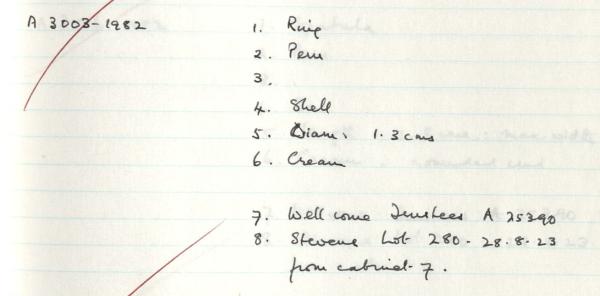 A 3003-1982 1. Ring
2. Peru
3.
4. Shell
5. Diam. 1.3 cms
6. Cream
7. Wellcome Trustees A 25390
8. Stevens Lot 280 - 28.8.23
from cabinet 7.